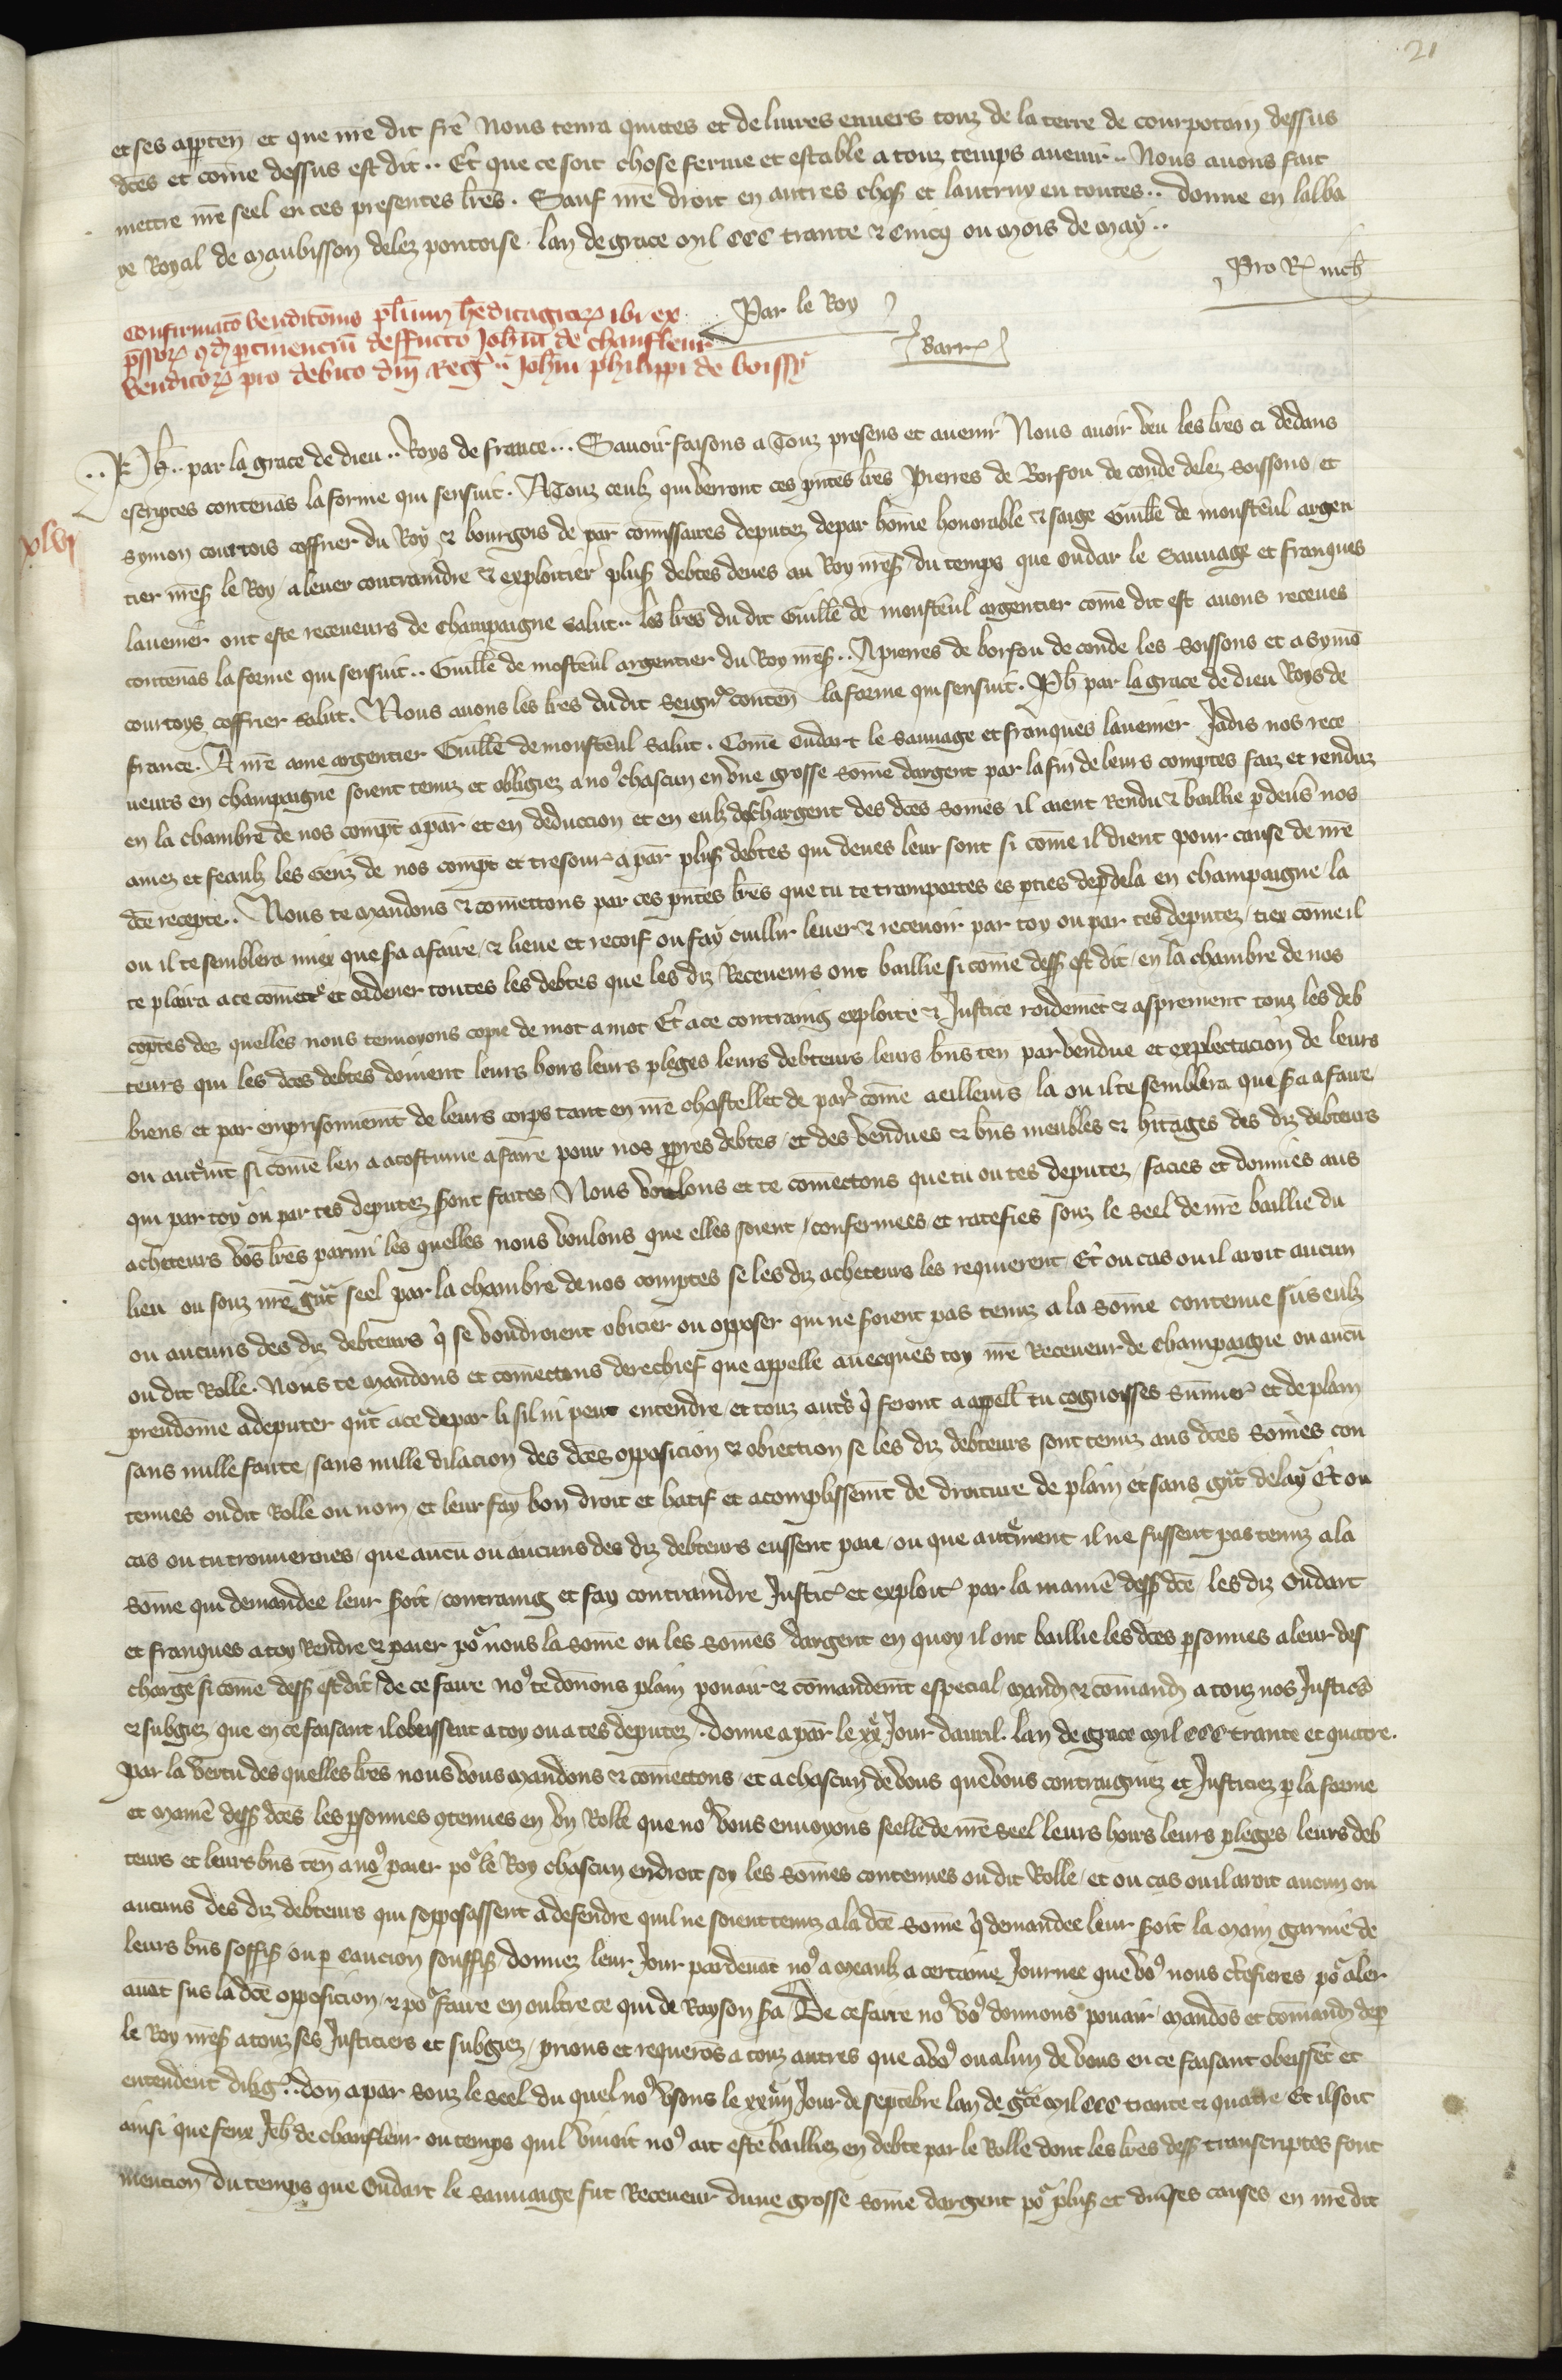 21
et ses apparten et que nre dit frere nous tenra quittes et deliures enuers touz de la terre de courpotain dessus
dctes et come dessus est dit .. Et que ce soit chose ferme et estable a touz temps auenir .. Nous auons fait
mettre nre seel en ces presentes lres . Sauf nre droit en autres choses et lautruy en toutes .. donne en labba
ye Royal de Maubisson delez pontoise . lan de grace mil CCC trante & Cincq ou mois de May ..
Par le Roy
Barr
Confirmato venditonis plurium heditagior ibi ex
pssor qd ptinenciu deffuncto Johni de chanfleur
venditor pro debito dni Reg .. Johni philippi de boissy
xlvj
.. Ph .. par la grace de dieu .. Roys de france ... Sauoir faisons a Touz presens et auenir Nous auoir veu les lres ci dedans
escriptes contenas la forme qui sensuit . A Touz ceulz qui verront ces pntes lres Pierres de Borfon de conde delez soissons et
symon courtois coffrier du Roy & bourgois de par comissaires deputez depar home honorable & saige Guille de monsteul argen
tier nres le Roy a leuer contraindre & exploitier plus debtes deues au Roy nres du temps que oudar le Sauuage et franques
lauenier ont este receueurs de Champaigne salut .. les lres du dit Guille de monsteul argentier come dit est auons receues
contenas la forme qui sensuit .. Guille de mosteul argentier du Roy nres .. A pierres de borfon de conde les soissons et a symo
courtoys coffrier salut . Nous auons les lres du dit seigr conten la forme qui sensuit . Ph par la grace de dieu Roys de
france . A nre ame argentier Guille de monsteul salut . Come oudart le sauuage et franques lauenier Jadis nos rece
ueurs en champaigne soient tenuz et obligiez a nos chascun en vne grosse some dargent par la fin de leurs comptes faiz et renduz
en la chambre de nos compt a par et en deduccion et en eulz deschargent des dces somes il aient rendu & baillie pdeus nos
amez et feaulz les genz de nos compt et tresour a par plus debtes qui deues leur sont si come il dient pour cause de nre
dce recepte .. Nous te mandons & comettons par ces pntes lres que tu te transportes es pties depdela en champaigne la
ou il te semblera miex que sra a faire & lieue et recoif ou fay cuillir leuer & receuoir par toy ou par tes deputez tiex come il
te plaira a ce comett et ordener toutes les debtes que les diz Receueurs ont baillie si come dess est dit en la chambre de nos
coptes des quelles nous tenuoyons copie de mot a mot Et a ce contraing exploite & Justice roidemet & asprement touz les deb
teurs qui les dces debtes doiuent leurs hoirs leurs pleges leurs debteurs leurs bns ten par vendue et explectacion de leurs
biens et par emprisonnemt de leurs corps tant en nre chastellet de par come aeilleurs la ou il te semblera que sra a faire
ou autrmt si come len a acostume a faire pour nos ppres debtes et des vendues & bns meubles & hitages des diz debteurs
qui par toy ou par tes deputez sront faites Nous voulons et te comettons que tu ou tes deputez facies et donnes aus
acheteurs vos lres parmi les quelles nous voulons que elles soient confermees et ratefies souz le seel de nre baillie du
lieu ou souz nre gnt seel par la chambre de nos comptes se les diz acheteurs les requierent Et ou cas ou il aroit aucun
ou aucuns des diz debteurs q se voudroient obicier ou opposer qui ne soient pas tenuz a la some contenue sus eulz
ou dit Rolle . Nous te mandons et comettons derechief que appelle auecques toy nre Receueur de champaigne ou aucu
preudome a deputer qnt a ce depar li sil ni peut entendre et touz autrs q seront a appell tu cognoisses summer et de plain
sans nulle faute sans nulle dilacion des dces opposicion & obiection se les diz debteurs sont tenuz aus dces somes con
tenues oudit Rolle ou nom et leur fay bon droit et hatif et acomplissemt de droiture de plain et sans gnt delay Et ou
cas ou tu trouueroies que aucu ou aucuns des diz debteurs eussent paie ou que autrment il ne fussent pas tenuz a la
some qui demandee leur sroit contraing et fay contraindre Justic et exploit par la manie dess dce les diz oudart
et franques a toy rendre & paier por nous la some ou les somes dargent en quoy il ont baillie les dces psonnes a leur des
charge si come dess est dit de ce faire nos te donons plain pouair & comandemt especial mand & comand a touz nos Justics
& subgiez que en ce faisant il obeissent a toy ou a tes deputez . donne a par le xxe Jour dauril . lan de grace mil CCC trante et quatre .
Par la vertu des quelles lres nous vous mandons & comettons et a chascun de vous que vous contraigniez et Justiciez p la forme
et manie dess dces les psonnes gtenues en vn Rolle que nos vous enuoyons seelle de nre seel leurs hoirs leurs pleges leurs deb
teurs et leurs bns ten a nos paier por le Roy chascun endroit soy les somes contenues oudit Rolle et ou cas ou il aroit aucun ou
aucuns des diz debteurs qui sopposassent a defendre quil ne soient tenuz a la dce some q demandee leur sroit la main garnie de
leurs bns soffis ou p caucion souffis donnez leur Jour pardeuat nos a meaulx a certaine Journee que vos nous ctefieres por aler
auat sus la dce opposicion & por faire en oultre ce qui de Rayson sra De ce faire nos vos donnons pouair mandos et comand dep
le Roy nres a touz ses Justiciers et subgiez prions et requeros a touz autres que a vos ou a lun de vous en ce faisant obeisset et
entendent dilig .. don a par souz le seel du quel nos vsons le xxiiij Jour de septebre lan de gce mil CCC trante & quatre Et il soit
ainsi que feux Jeh de chanfleur ou temps quil viuoit nos ait este bailliez en debte par le Rolle dont les lres dess transcriptes font
mencion du temps que Oudart le sauuaige fut Receueur dune grosse some dargent por plus et diuses causes en nre dit